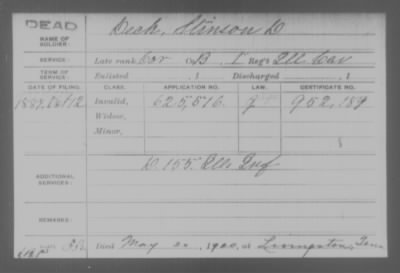 DEAD
NAME OF SOLDIER: Beck, Stinson D
SERVICE: Late rank, Cor Co. B, 1 Reg't Ill. Cav
TERM OF SERVICE: Enlisted , 1 Discharged , 1
DATE OF FILING. CLASS. APPLICATION NO. LAW. CERTIFICATE NO.
Invalid, 625,516. 952,189
Widow,
Minor,
ADDITIONAL SERVICES: D. 155. Ills Inf
REMARKS:
Died May 1900, at Livingston, Tenn